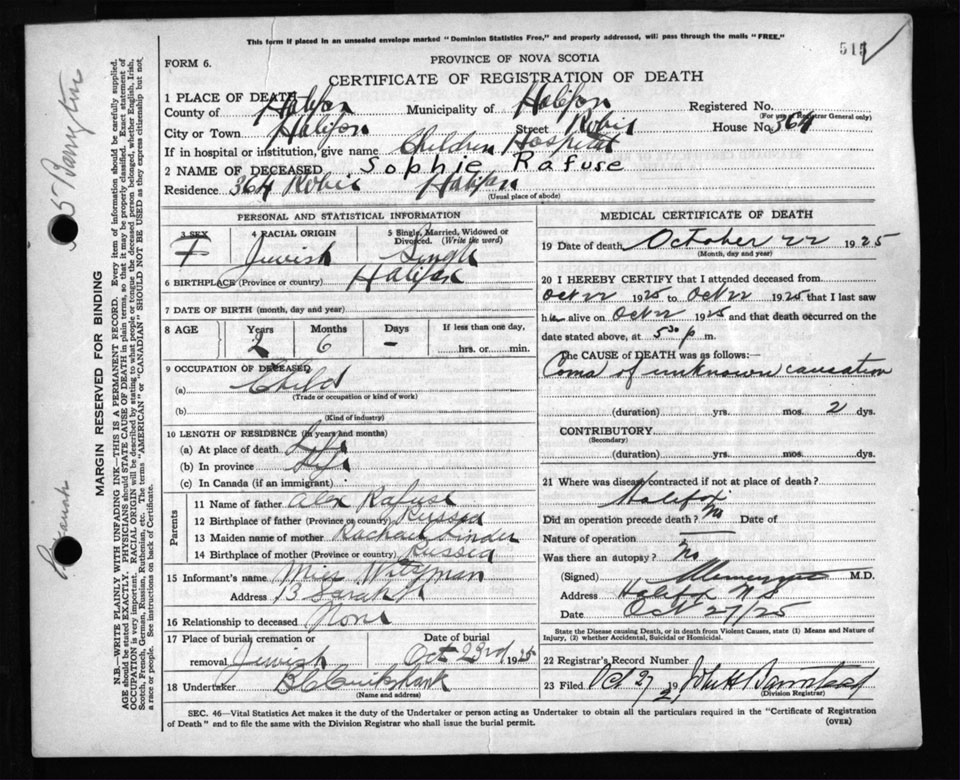 This form if placed in an unsealed envelope marked "Dominion Statistics Free," and properly addressed, will pass through the mails "FREE."
515
FORM 6.
PROVINCE OF NOVA SCOTIA
CERTIFICATE OF REGISTRATION OF DEATH
1 PLACE OF DEATH
County of Halifax Municipality of Halifax Registered No.
(For use of Registrar General only)
City or Town Halifax Street Robie House No. 364
If in hospital or institution, give name Children Hospital
2 NAME OF DECEASED Sophie Rafuse
Residence 364 Robie Halifax
(Usual place of abode)
PERSONAL AND STATISTICAL INFORMATION
3 SEX 4 RACIAL ORIGIN 5 Single, Married, Widowed or Divorced. (Write the word)
F Jewish Single
6 BIRTHPLACE (Province or country) Halifax
7 DATE OF BIRTH (month, day and year)
8 AGE Years Months Days If less than one day,
2 6 - hrs. or min.
9 OCCUPATION OF DECEASED
(a) Child
(Trade or occupation or kind of work)
(b)
(Kind of industry)
10 LENGTH OF RESIDENCE (in years and months)
(a) At place of death Life
(b) In province Life
(c) In Canada (if an immigrant)
Parents
11 Name of father Alex Rafuse
12 Birthplace of father (Province or country) Russia
13 Maiden name of mother Rachael
14 Birthplace of mother (Province or country) Russia
15 Informant's name Miss
Address 13 Sarah St
16 Relationship to deceased None
17 Place of burial, cremation or removal Jewish
Date of burial Oct 23rd 1925
18 Undertaker B C Cruikshank
(Name and address)
MEDICAL CERTIFICATE OF DEATH
19 Date of death October 22 1925
(Month, day and year)
20 I HEREBY CERTIFY that I attended deceased from
Oct 22 1925 to Oct 22 1925 that I last saw
her alive on Oct 22 1925 and that death occurred on
date stated above, at 5 30 p m.
The CAUSE of DEATH was as follows:—
Coma of unknown causation
(duration) yrs. mos. 2 dys.
CONTRIBUTORY
(Secondary)
(duration) yrs. mos. dys.
21 Where was disease contracted if not at place of death?
Halifax
Did an operation precede death? No Date of
Nature of operation
Was there an autopsy? No
(Signed) M.D.
Address Halifax N.S.
Date Oct 27/25
State the Disease causing Death, or in death from Violent Causes, state (1) Means and Nature of
Injury, (2) whether Accidental, Suicidal or Homicidal.
22 Registrar's Record Number
23 Filed Oct 27 192 John H Barnstead
(Division Registrar)
SEC. 46—Vital Statistics Act makes it the duty of the Undertaker or person acting as Undertaker to obtain all the particulars required in the "Certificate of Registration
of Death" and to file the same with the Division Registrar who shall issue the burial permit.
(OVER)
MARGIN RESERVED FOR BINDING
N.B.—WRITE PLAINLY WITH UNFADING INK—THIS IS A PERMANENT RECORD. Every item of information should be carefully supplied.
AGE should be stated EXACTLY. PHYSICIANS should STATE CAUSE OF DEATH in plain terms, so that it may be properly classified. Exact statement of
OCCUPATION is very important. RACIAL ORIGIN will be described by stating to what people or tongue the deceased person belonged, whether English, Irish,
Scotch, French, German, Russian, Ruthenian, etc. The terms "AMERICAN" or "CANADIAN" SHOULD NOT BE USED as they express citizenship but not
a race or people. See instructions on back of Certificate.
Barrington